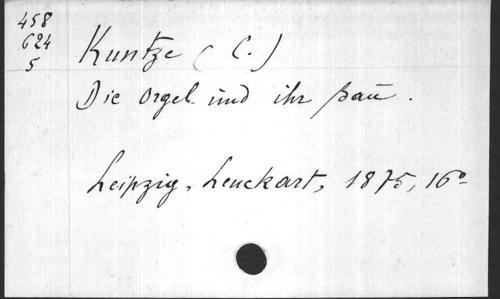 458
624
5
Kuntze (C.)
Die Orgel und ihr Bau.
Leipzig, Leuckart, 1875, 16°